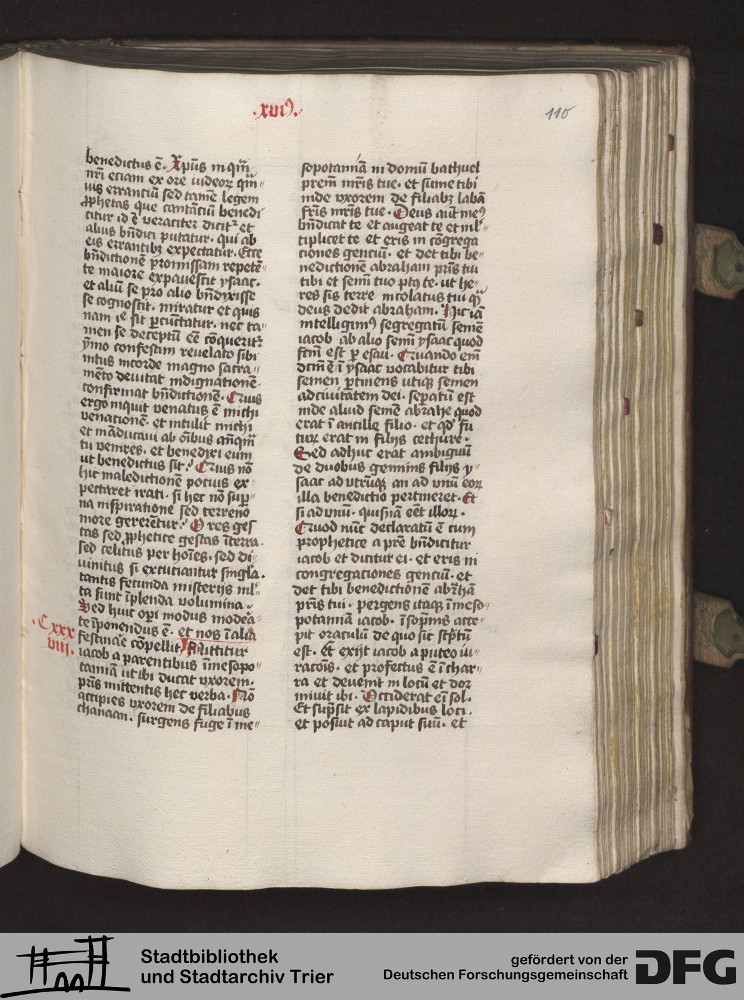 .xvi⁹.
110
benedictus ē. Xp̄us inqm̄
nr̄i eciam ex ore iudeoꝝ qm̄
uis errantiū sed tamē legem
ꝓphetas que cantātiū benedi
citur id ē veraciter dicitᷣ et
alius bn̄dici putatur. qui ab
eis errantibꝫ expectatur. Ecce
bn̄dictionē promissam repetē
te maiore expauescit ysaac.
et aliū se pro alio bn̄dixisse
se cognoscit. miratur et quis
nam ie sit ꝑcūctatur. nec ta
men se deceptū eē cōqueritᷣ
ymo confestim reuelato sibi
intus incorde magno sacra
mēto deuitat indignationē
confirmat bn̄dictionē. Quis
ergo inquit venatus ē michi
venationē. et intulit michi
et māducaui ab oībus anqm̄
tu venires. et benedixi eum
ut benedictus sit. Quis nō
hic maledictionē potius ex
pectaret irati. si hec nō sup̄
na inspiratione sed terreno
more gererētur. O res ges
tas sed ꝓphetice gestas īterra.
sed celitus per hoīes. sed di
uinitus si excutiantur singl̄a.
tantis fecunda misterijs ml̄
ta sunt īplenda volumina.
Sed huic oꝑi modus modea
te īponendus ē. et nos ī alia
festināe cōpellit. Mittitur
.C xxx
viij.
iacob a parentibus īmesopo
tamiā ut ibi ducat vxorem.
pr̄is mittentis hec verba. Nō
accipies vxorem de filiabus
chanaan. surgens fuge ī me
sopotamiā in domū bathuel
prem̄ mr̄is tue. et sume tibi
inde vxorem de filiabꝫ labā
fr̄is mr̄is tue. Deus aūt me⁹
bn̄dicat te et augeat te et ml̄
tiplicet te et eris in cōgrega
ciones gentiū. et det tibi be
nedictionē abraham pr̄is tui
tibi et semī tuo pt̄y te. ut he
res sis terre incolatus tui qm̄
deus dedit abraham. Hic iā
intelligim⁹ segregatū semē
iacob ab alio semī ysaac quod
fc̄m est ꝑ esau. Quando em̄
dc̄m ē ī ysaac vocabitur tibi
semen pertinens utiqꝫ semen
adciuitatem dei. seꝑatū est
inde aliud semē abrahe quod
erat ī ancille filio. et qd̄ fu
turꝫ erat in filijs cethure.
Sed adhuc erat ambiguū
de duobus geminis filijs y
saac ad utrūqꝫ an ad vnū eoꝝ
illa benedictio pertineret. Et
si ad vnū. quisnā eēt illoꝝ.
Quod nūc declaratū ē cum
prophetice a prē bn̄dicitur
iacob et dicitur ei. et eris in
congregaciones gentiū. et
det tibi benedictionē abr̄hā
pr̄is tui. pergens itaqꝫ īmeso
potamiā iacob. ī sopm̄s acce
pit oraculū de quo sic sc̄ptū
est. Et exijt iacob a puteo iu
racōis. et profectus ē ī char
ra et deuenit in locū et dor
miuit ibi. Occiderat eī sol.
Et sup̄sit ex lapidibus loci.
et posuit ad caput suū. et
Stadtbibliothek
und Stadtarchiv Trier
gefördert von der
Deutschen Forschungsgemeinschaft
DFG